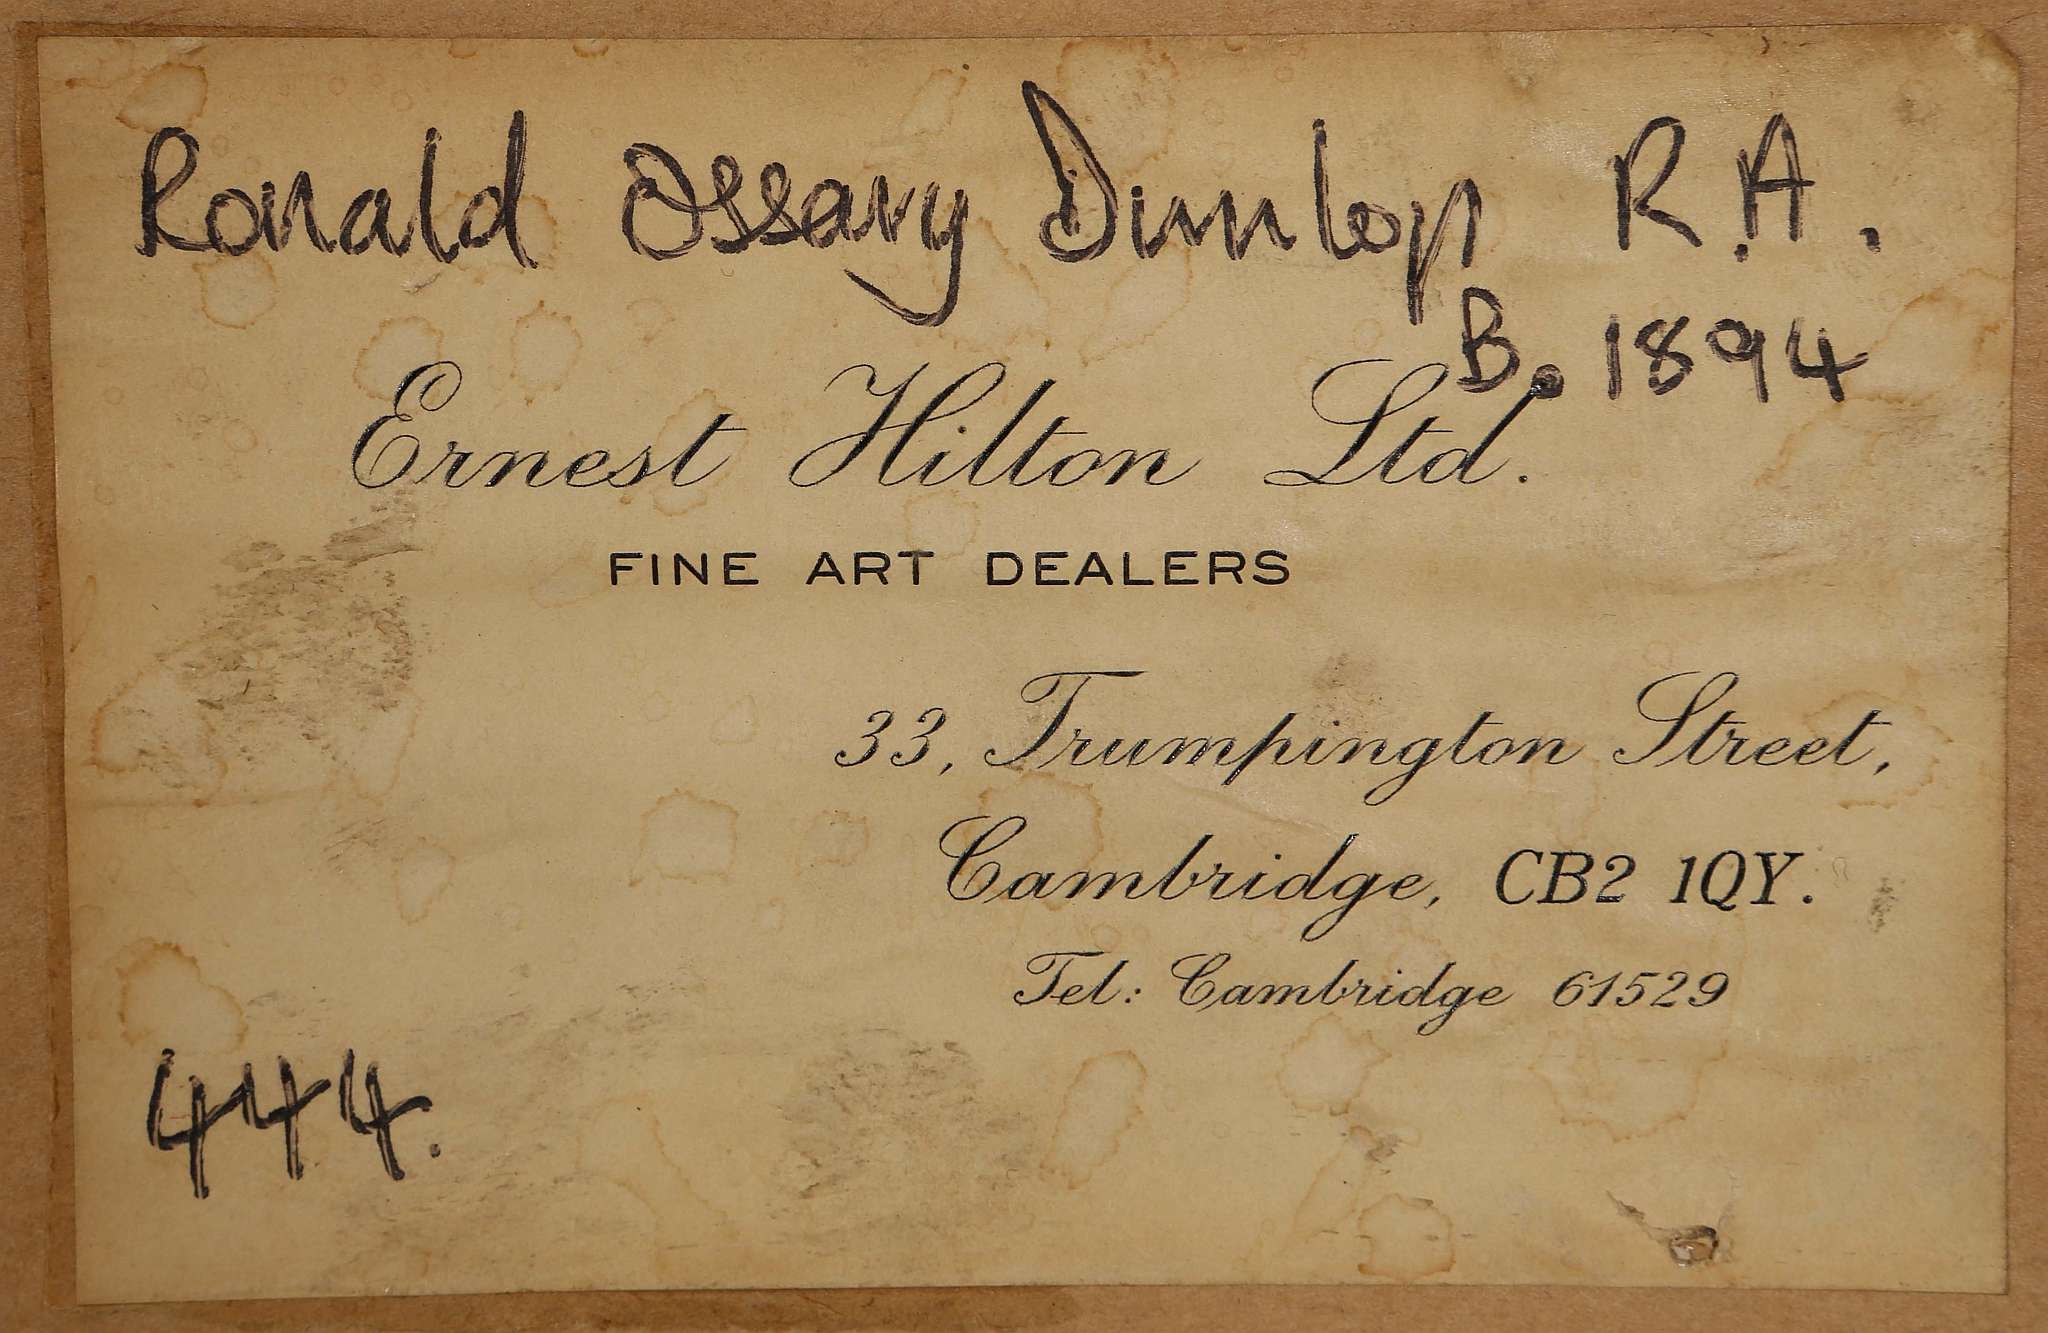 Ronald Ossary Dunlop R.A.
B. 1894
Ernest Hilton Ltd.
FINE ART DEALERS
33, Trumpington Street,
Cambridge, CB2 1QY.
Tel: Cambridge 61529
444.